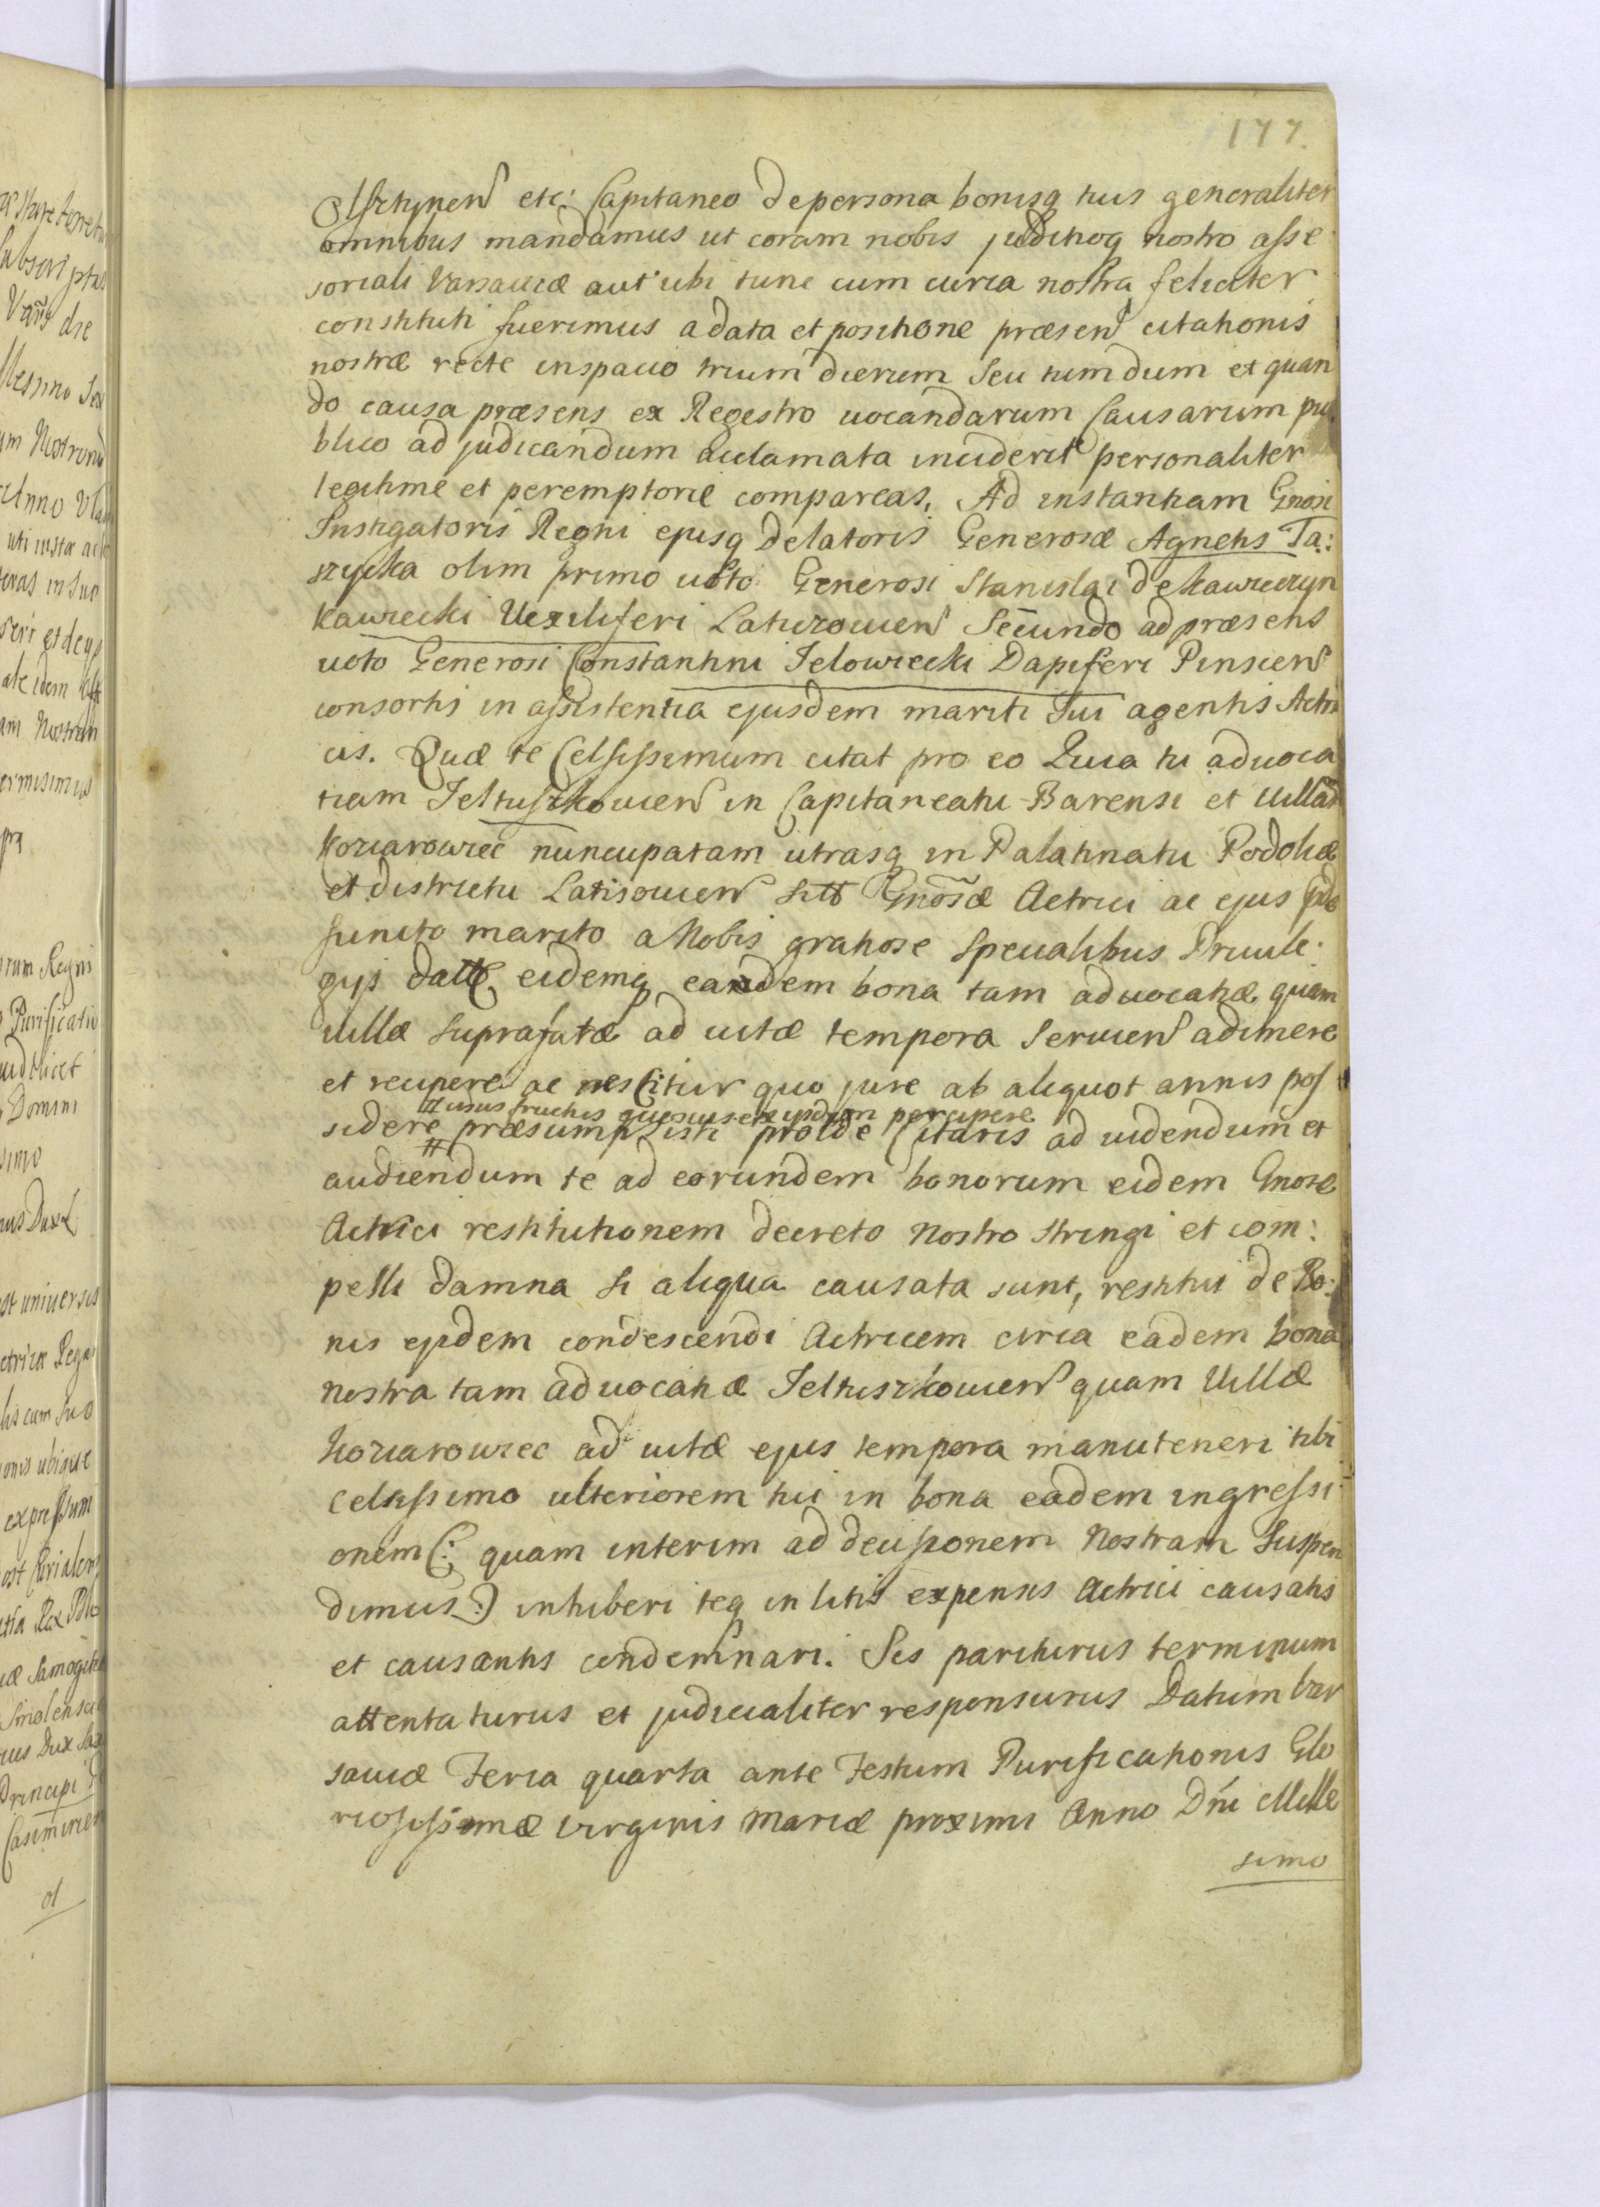 177.
Olsztynen etc: Capitaneo de persona bonisq tuis generaliter
omnibus mandamus ut coram nobis judicioq nostro asse
soriali Varsaviæ aut ubi tunc cum curia nostra feliciter
constituti fuerimus a data et positione præsen citationis
nostræ recte in spacio trium dierum seu tum dum et quan
do causa præsens ex Regestro vocandarum Causarum pu
blico ad judicandum acclamata inciderit personaliter
legitime et peremptorie compareas. Ad instantiam Gnosi
Instigatoris Regni ejusq Delatoris Generosæ Agnetis Ta:
szycka olim primo voto Generosi Stanislai de Kawieczyn
Kawiecki Vexiliferi Laticzovien Secundo ad præsens
voto Generosi Constantini Jelowiecki Dapiferi Pinscien
consortis in assistentia ejusdem mariti sui agentis Actri
cis. Quæ te Celsissimum citat pro eo Quia tu advoca
tiam Jeltuszkovien in Capitaneatu Barensi et villam
Koziarowiec nuncupatam utrasq in Palatinatu Podoliæ
et districtu Laticovien sitt Gnosæ Actrici ac ejus præ
functo marito a Nobis gratiose specialibus Privile:
gijs datt eidemq eandem bona tam advocatiæ quam
villæ suprafatæ ad vitæ tempora servien adimere
et recipere ac nescitur quo jure ab aliquot annis pos
# usus fructus quosvis ex ijsdem percipere
sidere # præsumpsisti proide Citaris ad videndum et
audiendum te ad eorundem bonorum eidem Gnosæ
Actrici restitutionem decreto nostro stringi et com:
pelli damna si aliqua causata sunt, restitui de Bo:
nis ejsdem condescendi Actricem circa eadem bona
nostra tam advocatiæ Jeltuszkovien quam Villæ
Koziarowiec ad vitæ ejus tempora manuteneri tibi
Celsissimo ulteriorem tui in bona eadem ingressi
onem (: quam interim ad decisionem Nostram Suspen
dimus :) inhiberi teq in litis expensis Actrici causatis
et causantis condemnari. Sis pariturus terminum
attentaturus et judicialiter responsurus Datum Var
saviæ Feria quarta ante Festum Purificationis Glo
riosissimæ Virginis Mariæ proximi Anno Dni Mille
simo